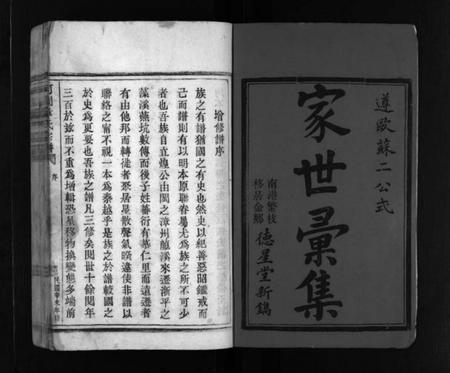 遵歐蘇二公式
家世彙集
南港繁枝
移居金鄉
德星堂新鐫
增修譜序
族之有譜猶國之有史也然史以紀善惡昭鑑戒而
己而譜則有以明本原聯眷屬尤為族之所不可少
者也吾族自直煌公由閩之漳州龍溪來遷浙平之
藻溪蕉坑數傳而後子姓蕃衍有華仁里而遠遷者
有由他邦而轉徙者恐居星散聲氣暌違使非譜以
聯絡之甯不視一本為秦越乎是族之於譜較國之
於史為更要也吾族之譜凡三修矣閱世十餘閱年
三百於玆而不重為增輯恐星移物換變態多端前
序